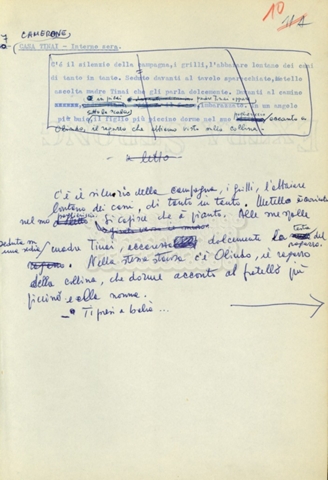 10
CAMERONE,
CASA TINAI - Interno sera.
C'è il silenzio della campagna, i grilli, l'abbaiare lontano dei cani
di tanto in tanto. Seduto davanti al tavolo sparecchiato, Metello
ascolta madre Tinai che gli parla dolcemente. Davanti al camino
in un angolo
più buio, il figlio più piccino dorme nel suo accanto a
Olindo, il ragazzo che abbiamo visto sulla collina.
letto
C'è il silenzio della campagna, i grilli, l'abbaiare
lontano dei cani, di tanto in tanto. Metello è
nel suo si capisce che ha pianto.
seduta su
una sedia madre Tinai, dolcemente la testa del
ragazzo.
Nella stessa stanza c'è Olindo, il ragazzo
della collina, che dorme accanto al fratello più
piccino e alla nonna.
- Ti presi a balia...